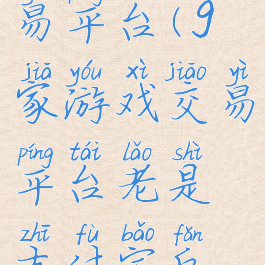 易平台(9
jiā yóu xì jiāo yì
家游戏交易
píng tái lǎo shì
平台老是
zhī fù bǎo fǎn
支付宝反